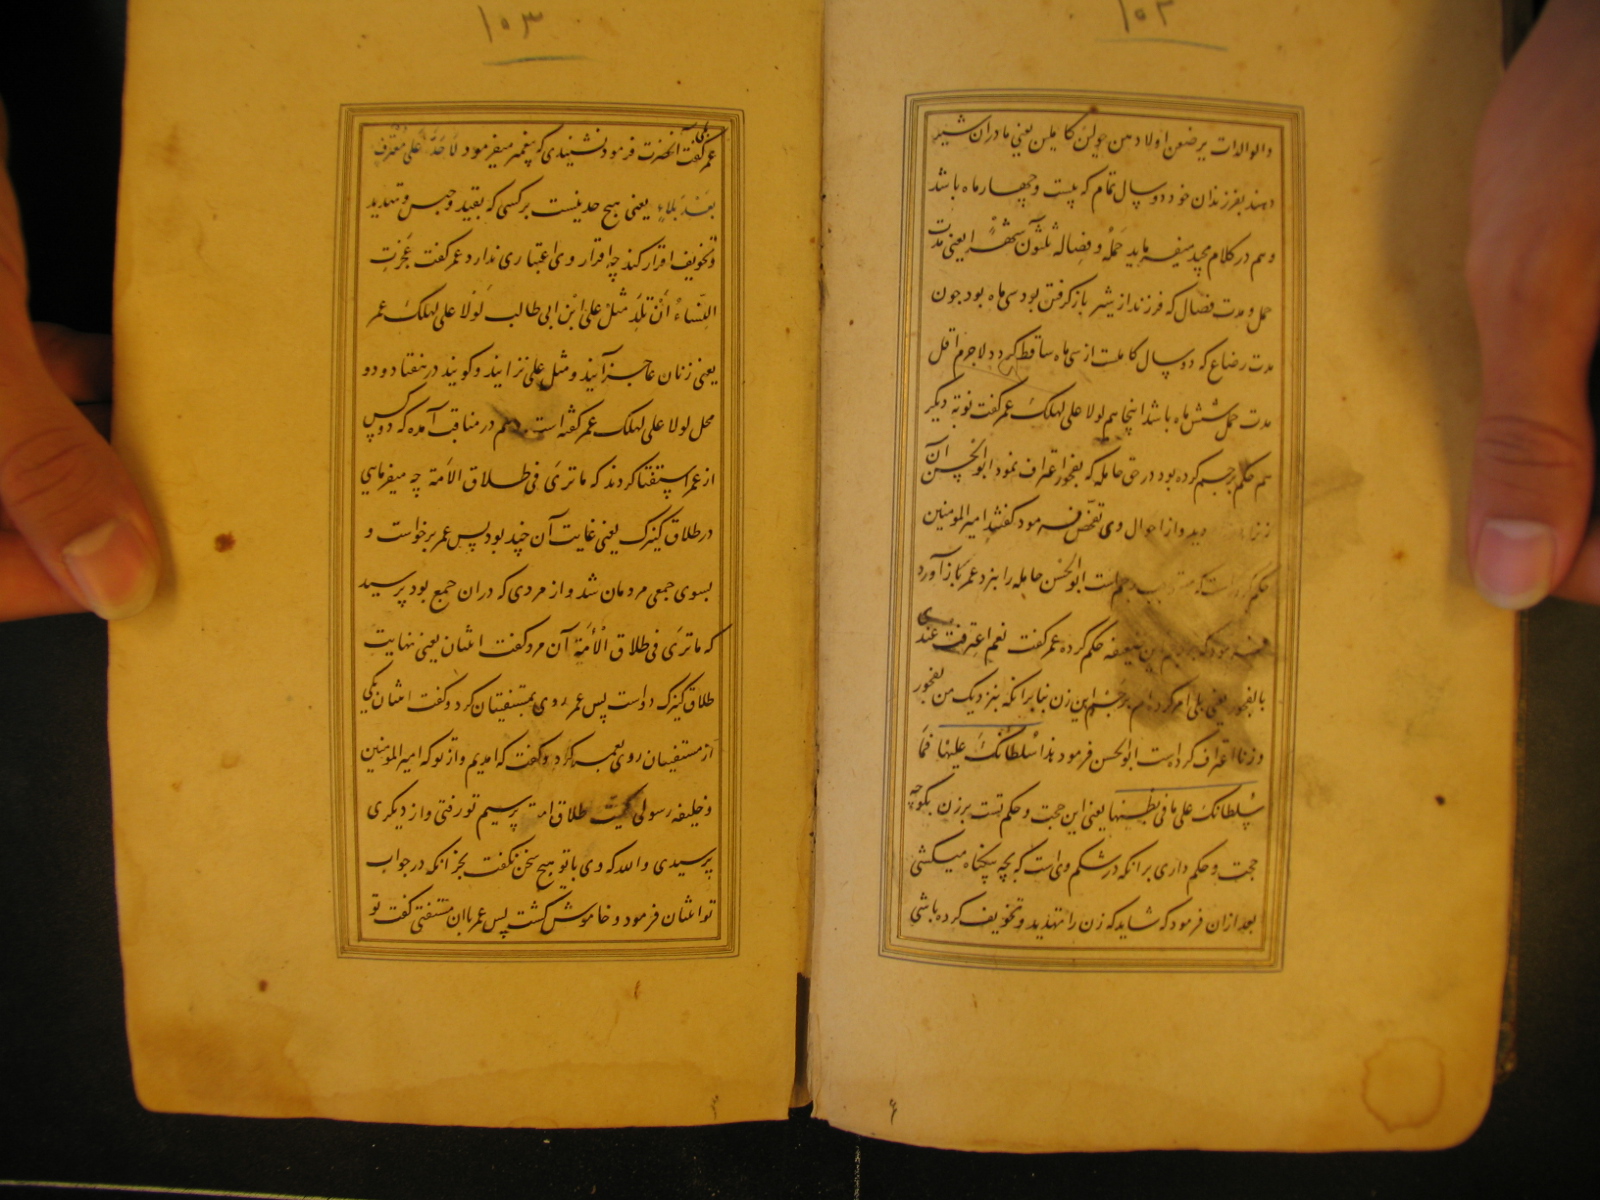 ۱۰۲
والوالدات یرضعن اولادهن حولین کاملین یعنی مادران شیر
دهند بفرزندان خود دو سال تمام که بیست و چهار ماه باشد
و هم در کلام مجید میفرماید حمله و فصاله ثلثون شهرا یعنی مدت
حمل و مدت فصال که فرزند از شیر باز کرفتن بود سی ماه بود چون
مدت رضاع که دو سال کاملست از سی ماه ساقط کردد لاجرم اقل
مدت حمل شش ماه باشد اینجا هم لولا علی لهلک عمر کفت نوبة دیکر
هم حکم برجم کرده بود در حق حامله که بفجور اعتراف نمود ابوالحسن آن
زنرا دید و از احوال وی تفحص فرمود کفتند امیرالمومنین
حکم کرده است که ابوالحسن حامله را بنزد عمر باز آورد
فرمود که حکم کرده عمر کفت نعم اعترفت عندی
بالفجور یعنی بلی امر کرده‌ام برجم این زن بنا برانکه بنزدیک من بفجور
و زنا اعتراف کرده است ابوالحسن فرمود هذا سلطانک علیها فما
سلطانک علی ما فی بطنها یعنی این حجت و حکم تست بر زن بکو چه
حجت و حکم داری برانکه در شکم وی است که بچه بیکناه میکشی
بعد ازان فرمود که شاید که زن را تهدید و تخویف کرده باشی
۱۰۳
عمر کفت بلی آنحضرت فرمود نشنیدی که پیغمبر میفرمود لا حد علی معترف
بعد بلاء یعنی هیچ حد نیست برکسی که بقید و حبس و تهدید
و تخویف اقرار کند چه اقرار وی اعتباری ندارد عمر کفت عجزت
النساء ان تلد مثل علی ابن ابی طالب لولا علی لهلک عمر
یعنی زنان عاجز آیند و مثل علی نزایند و کویند در هفتاد و دو
محل لولا علی لهلک عمر کفته است و هم در مناقب آمده که دو کس
از عمر استفتا کردند که ما تری فی طلاق الامة چه میفرمایی
در طلاق کنیزک یعنی غایت آن چند بود پس عمر برخواست و
بسوی جمعی مردمان شد و از مردی که دران جمع بود پرسید
که ما تری فی طلاق الامة آن مرد کفت اثنان یعنی نهایت
طلاق کنیزک دو است پس عمر روی بمستفتیان کرد و کفت اثنان یکی
از مستفتیان روی بعمر کرد و کفت که آمدیم و از تو که امیرالمومنین
و خلیفه رسولی طلاق امة پرسیم تو رفتی و از دیکری
پرسیدی والله که وی با تو هیچ سخن نکفت بجز آنکه در جواب
تو اثنان فرمود و خاموش کشت پس عمر بان مستفتی کفت تو